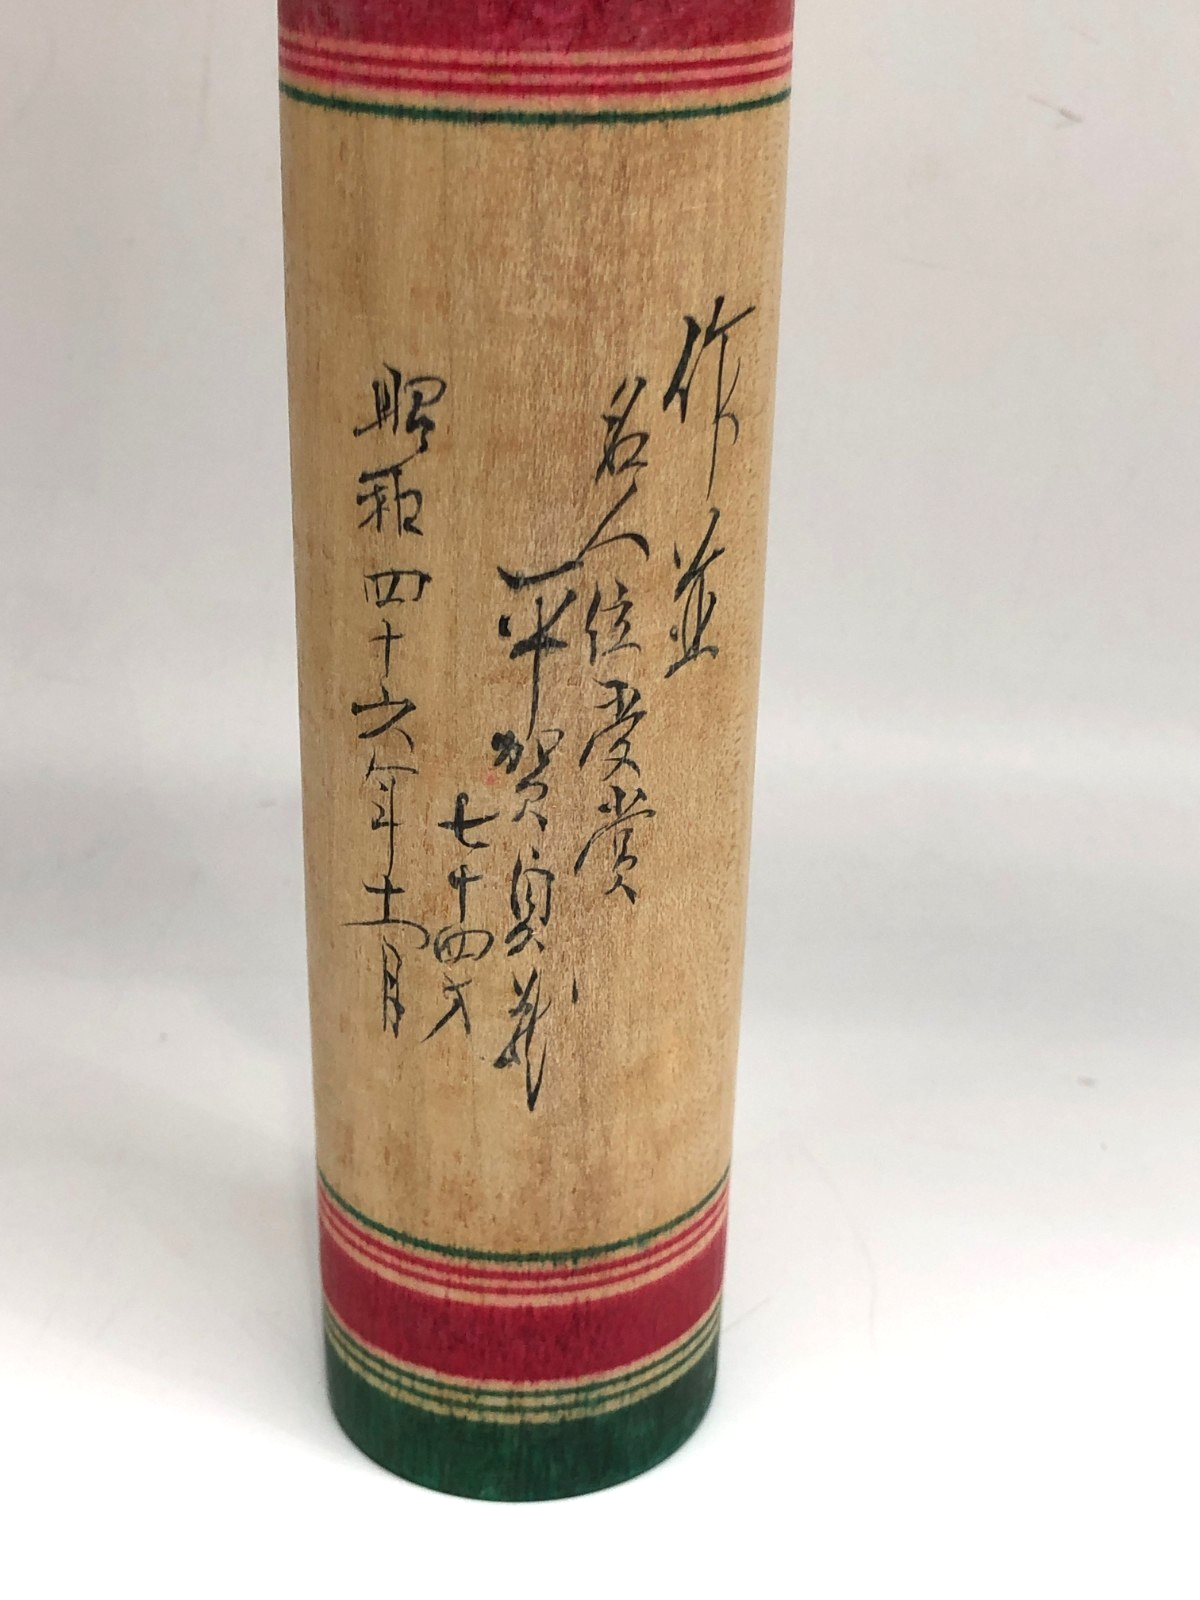 作並
名人位受賞
平賀貞蔵
七十四才
昭和四十六年十一月